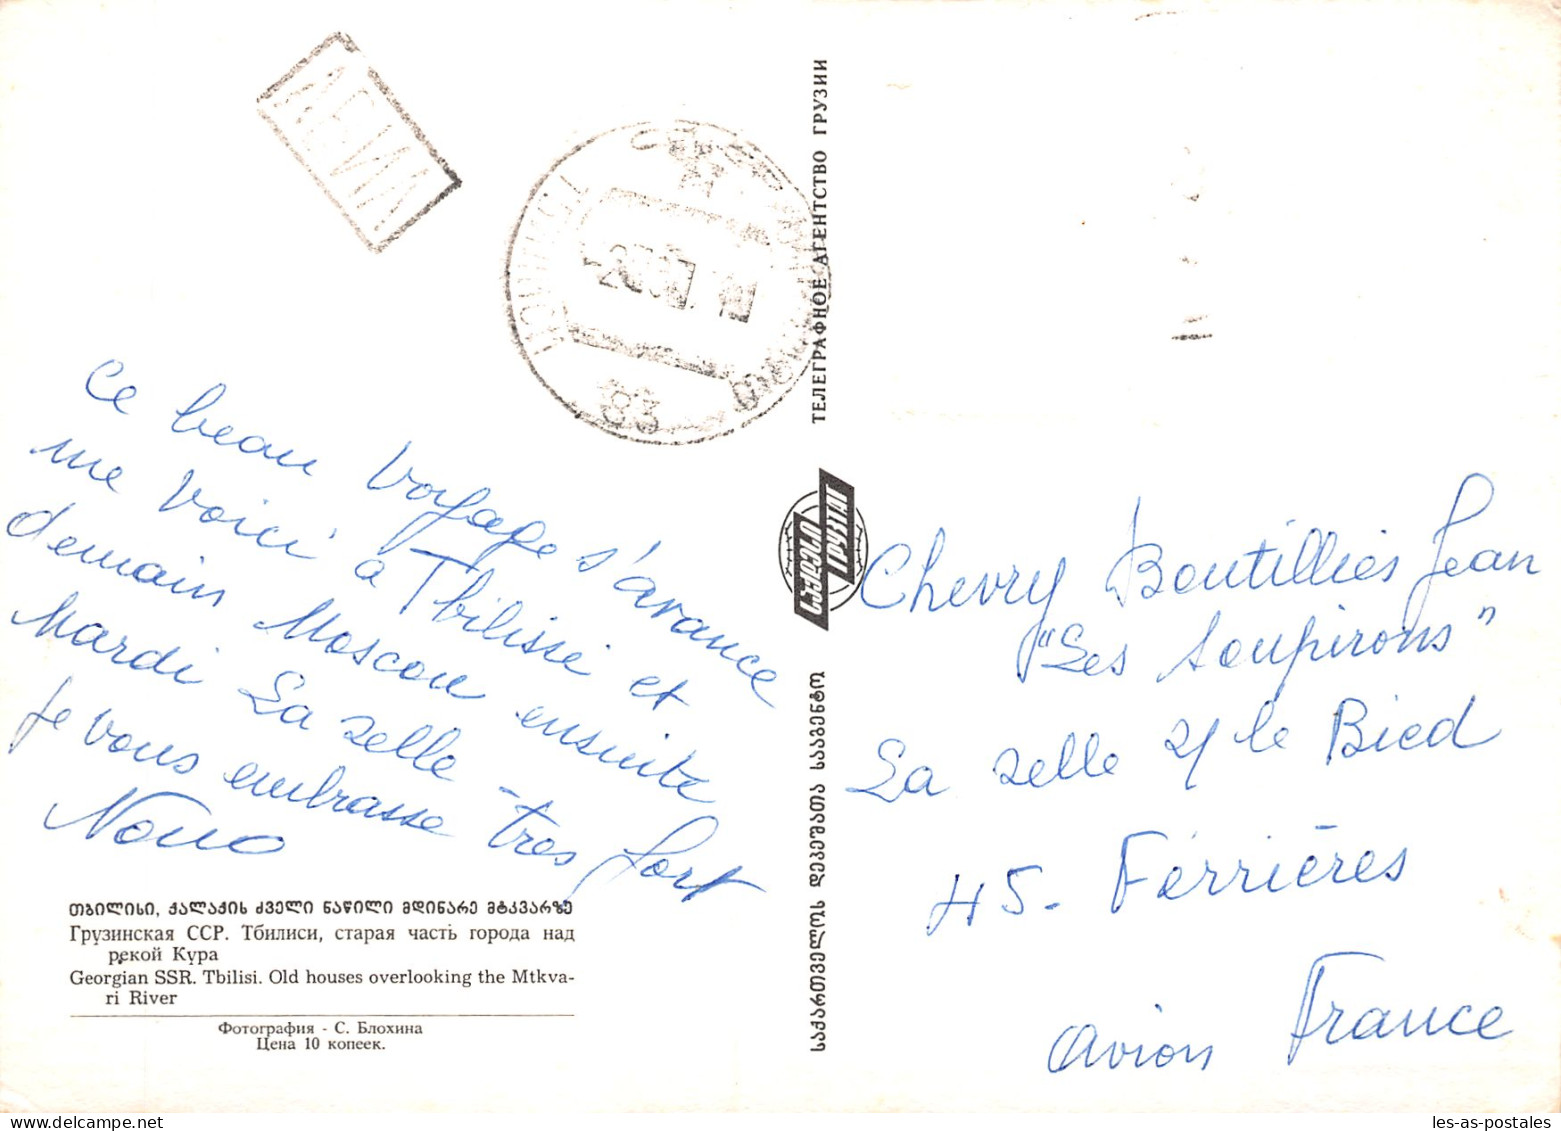 АВИА
83
Ce beau voyage s'avance
me voici à Tbilissi et
demain Moscou ensuite
Mardi La selle
je vous embrasse très fort
Nono
თბილისი, ქალაქის ძველი ნაწილი მდინარე მტკვარზე
Грузинская ССР. Тбилиси, старая часть города над
рекой Кура
Georgian SSR. Tbilisi. Old houses overlooking the Mtkva-
ri River
Фотография - С. Блохина
Цена 10 копеек.
ТЕЛЕГРАФНОЕ АГЕНТСТВО ГРУЗИИ
საქართველოს დეპეშათა სააგენტო
Chevry Boutilliés Jean
"Les Soupirons"
La selle s/ le Bied
45. Férrières
France
avion
les-as-postales